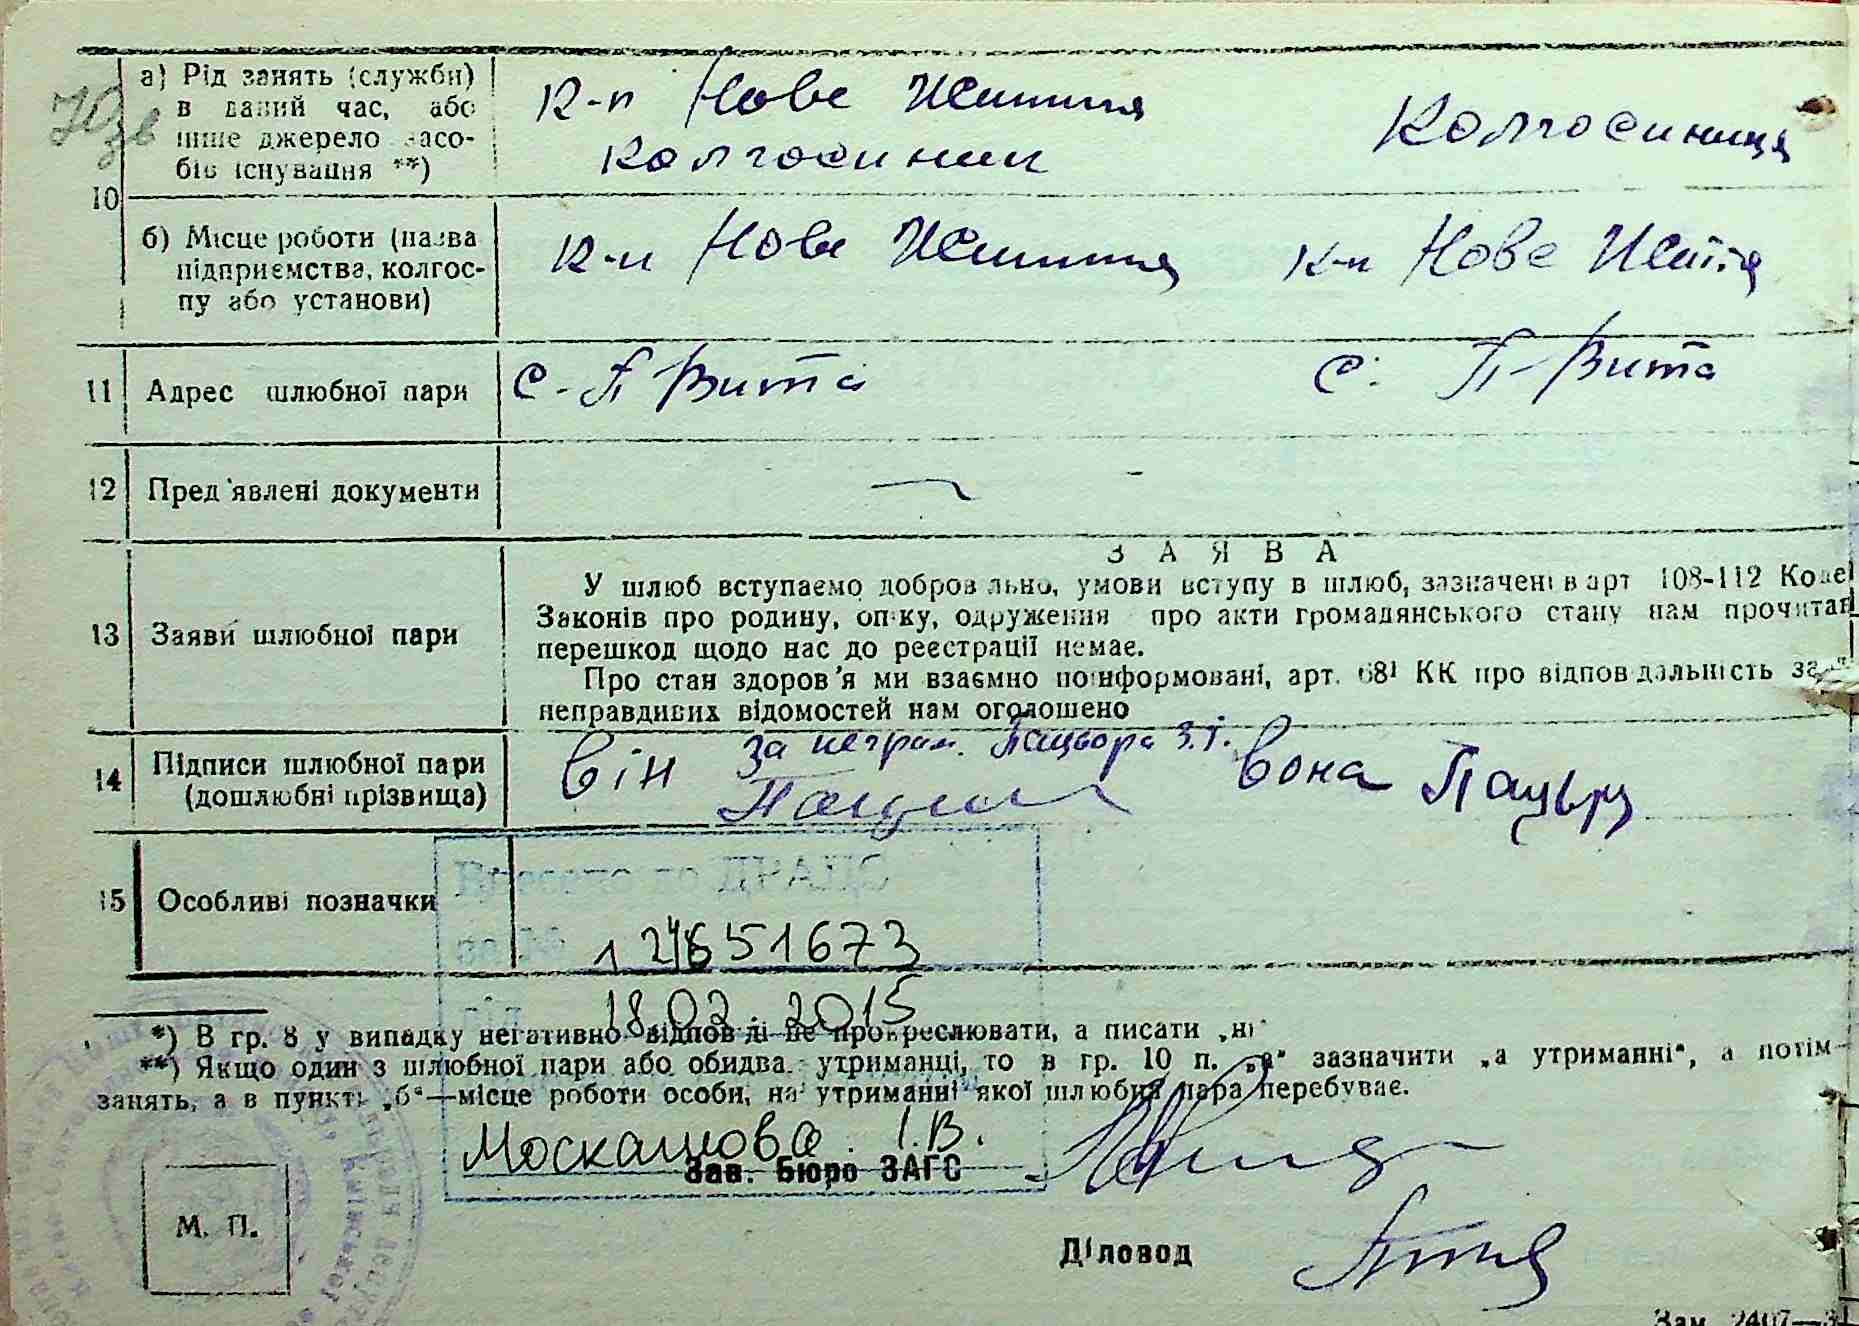 а) Рід занять (служби)
в даний час, або
інше джерело засо-
бів існування **)
К-п Нове Життя
колгоспник
Колгоспниця
10
б) Місце роботи (назва
підприємства, колгос-
пу або установи)
К-п Нове Життя
К-п Нове Життя
11 Адрес шлюбної пари
с. П-Вита
с. П-Вита
12 Пред'явлені документи
—
-
ЗАЯВА
13 Заяви шлюбної пари
У шлюб вступаємо добров льно, умови вступу в шлюб, зазначені в арт 108-112 Коде
Законів про родину, опіку, одруження про акти громадянського стану нам прочитан
перешкод щодо нас до реєстрації немає.
Про стан здоров'я ми взаємно поінформовані, арт. 68¹ КК про відпов дальність за
неправдивих відомостей нам оголошено
14 Підписи шлюбної пари
(дошлюбні прізвища)
Він за неграм. Пацьора З.І.
Вона
15 Особливі позначки
Внесено до ДРАЦС
за №
12651673
від 18.02.2015
*) В гр. 8 у випадку негативно відпов ді не прокреслювати, а писати „ні"
**) Якщо один з шлюбної пари або обидва утриманці, то в гр. 10 п. „а" зазначити „а утриманні", а потім
занять, а в пункті „б"—місце роботи особи, на утриманні якої шлюбна пара перебуває.
Москашова І.В.
Зав. Бюро ЗАГС
М. П.
Діловод
Зам. 2407—3